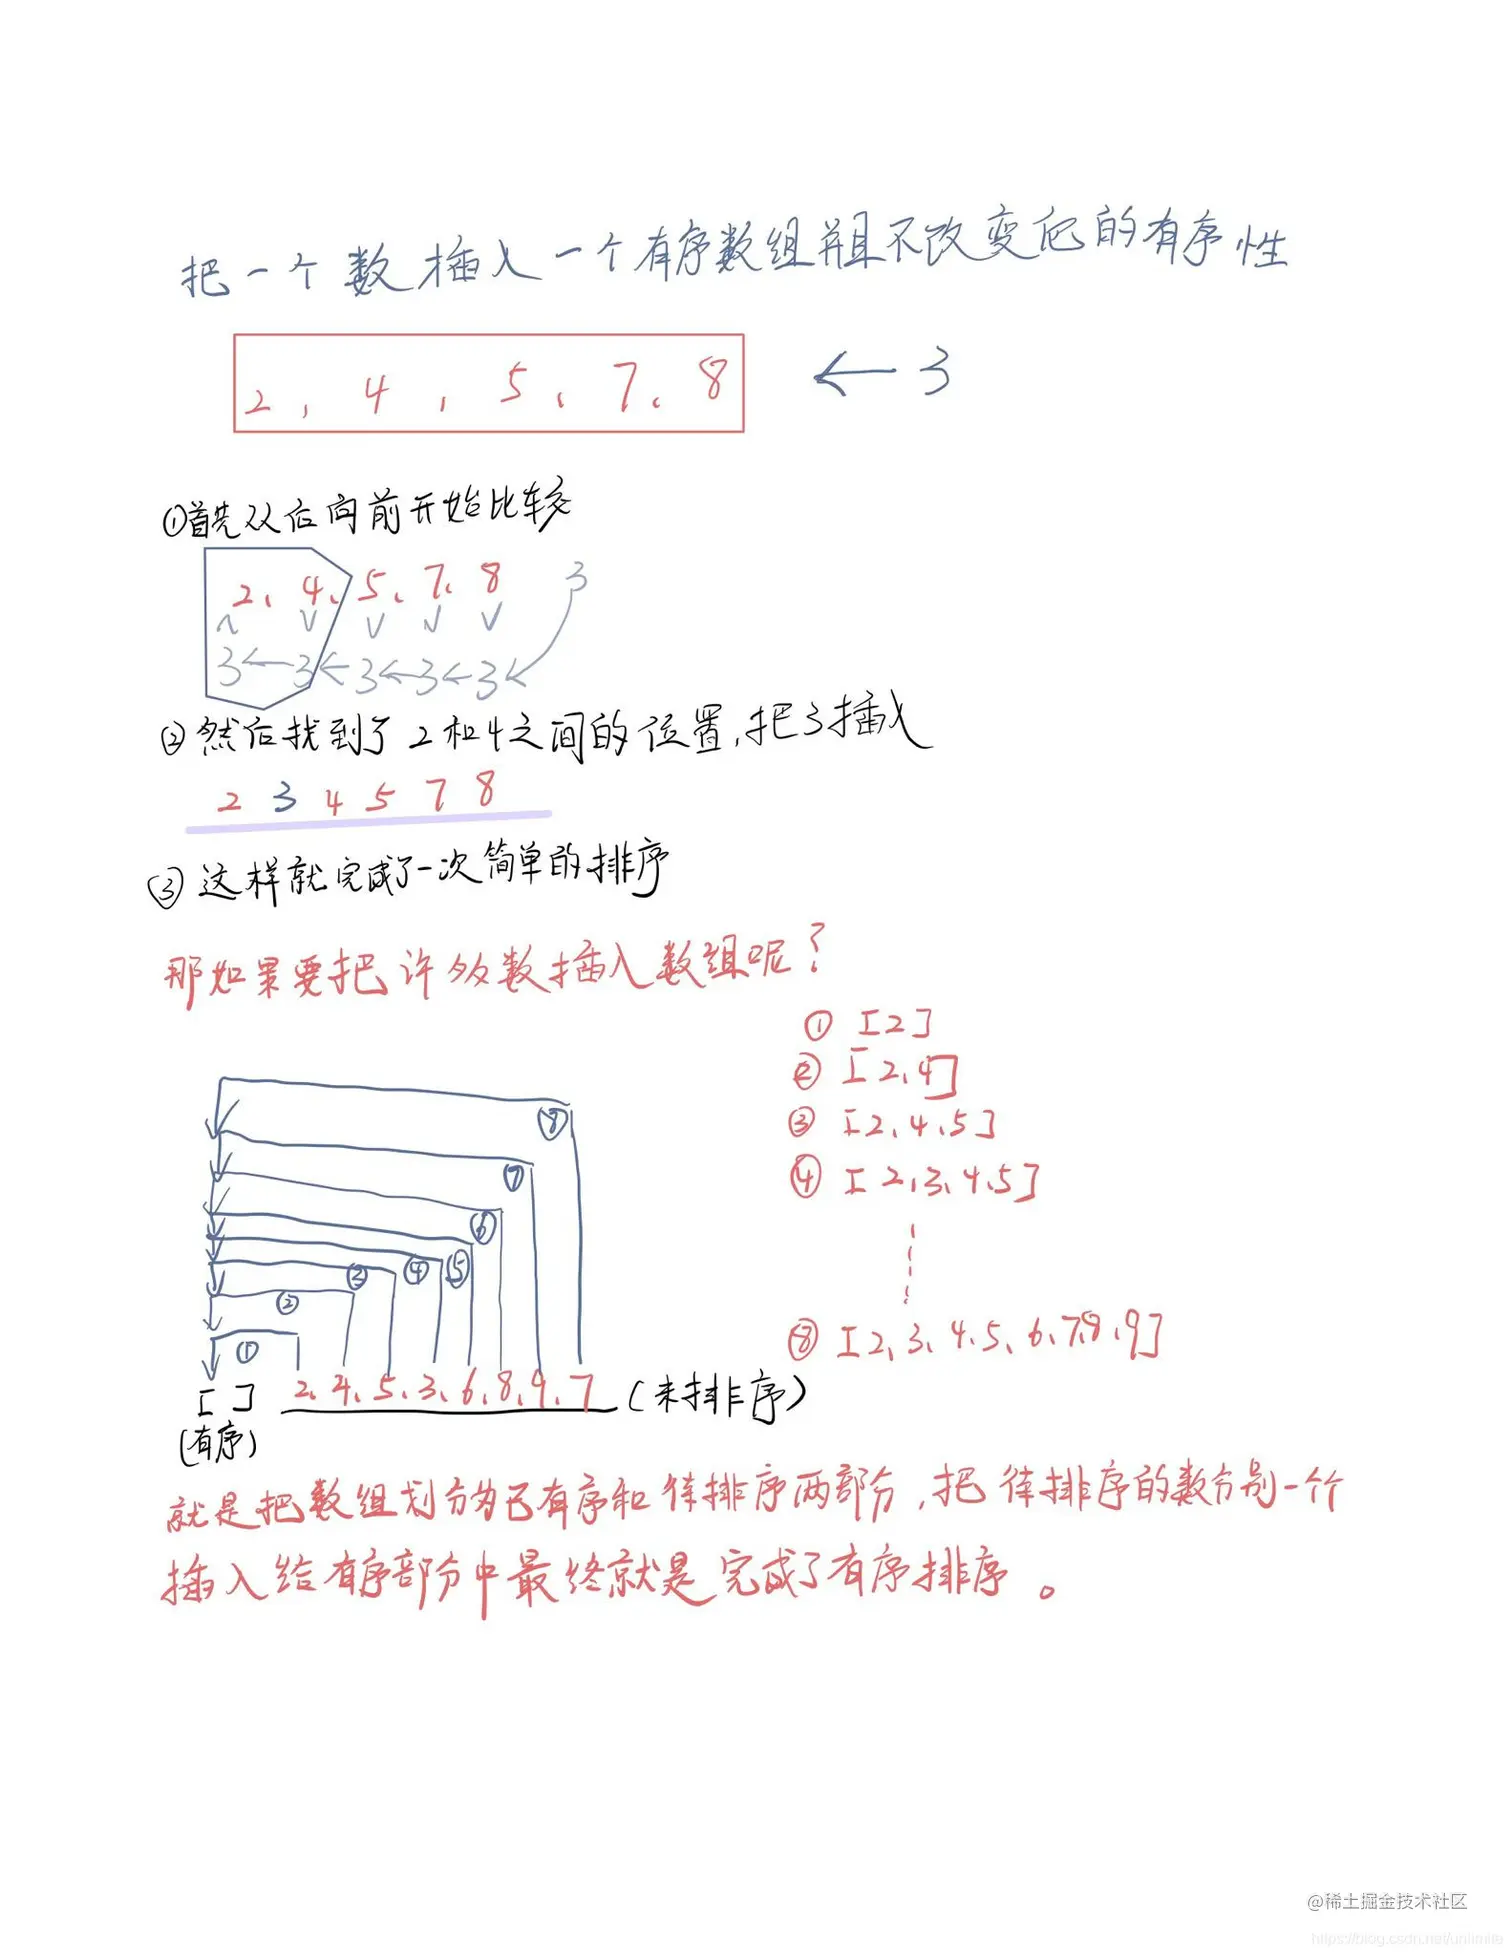 把一个数插入一个有序数组并且不改变他的有序性
2, 4, 5, 7, 8 ← 3
①首先从后向前开始比较
2、4、5、7、8 3
∧ ∨ ∨ ∨ ∨
3←3←3←3←3
②然后找到了2和4之间的位置,把3插入
2 3 4 5 7 8
③这样就完成了一次简单的排序
那如果要把许多数插入数组呢?
① [2]
② [2、4]
③ [2、4、5]
④ [2,3、4、5]
⑧ [2、3、4、5、6、7、8、9]
⑧
⑦
⑥
③ ④ ⑤
②
①
[ ] 2、4、5、3、6、8、9、7 (未排序)
(有序)
就是把数组划分为已有序和待排序两部分,把待排序的数分别一个
插入给有序部分中最终就是完成了有序排序。
@稀土掘金技术社区
https://blog.csdn.net/unlimite